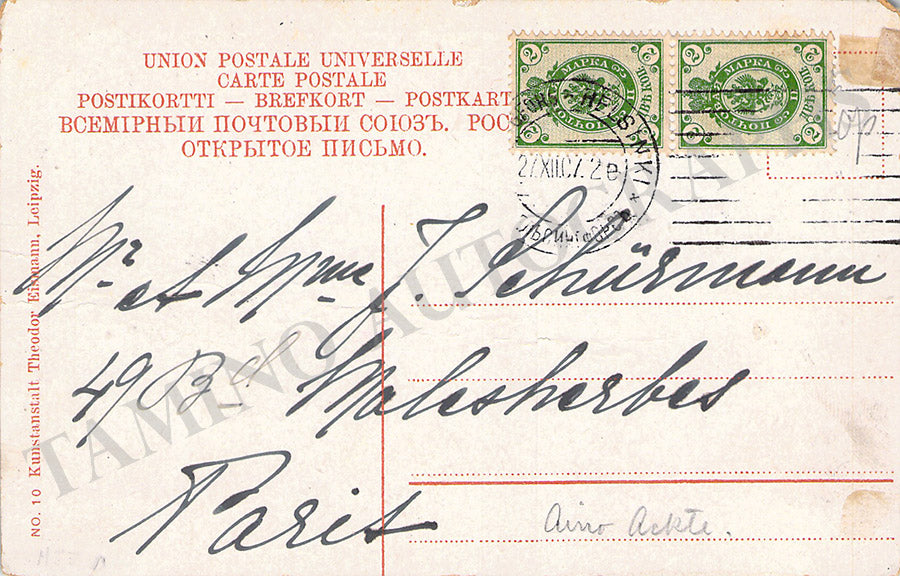 UNION POSTALE UNIVERSELLE
CARTE POSTALE
POSTIKORTTI — BREFKORT — POSTKART
ВСЕМІРНЫИ ПОЧТОВЫИ СОЮЗЪ. РОС
ОТКРЫТОЕ ПИСЬМО.
2 МАРКА 2
2 МАРКА 2
HELSINKI
27.XII.07. 2e
Mr et Mme J. Schürmann
49 Bd Malesherbes
Paris
Aino Ackté.
NO. 10 Kunstanstalt Theodor Eismann, Leipzig.
TAMINO AUTOGRAPHS